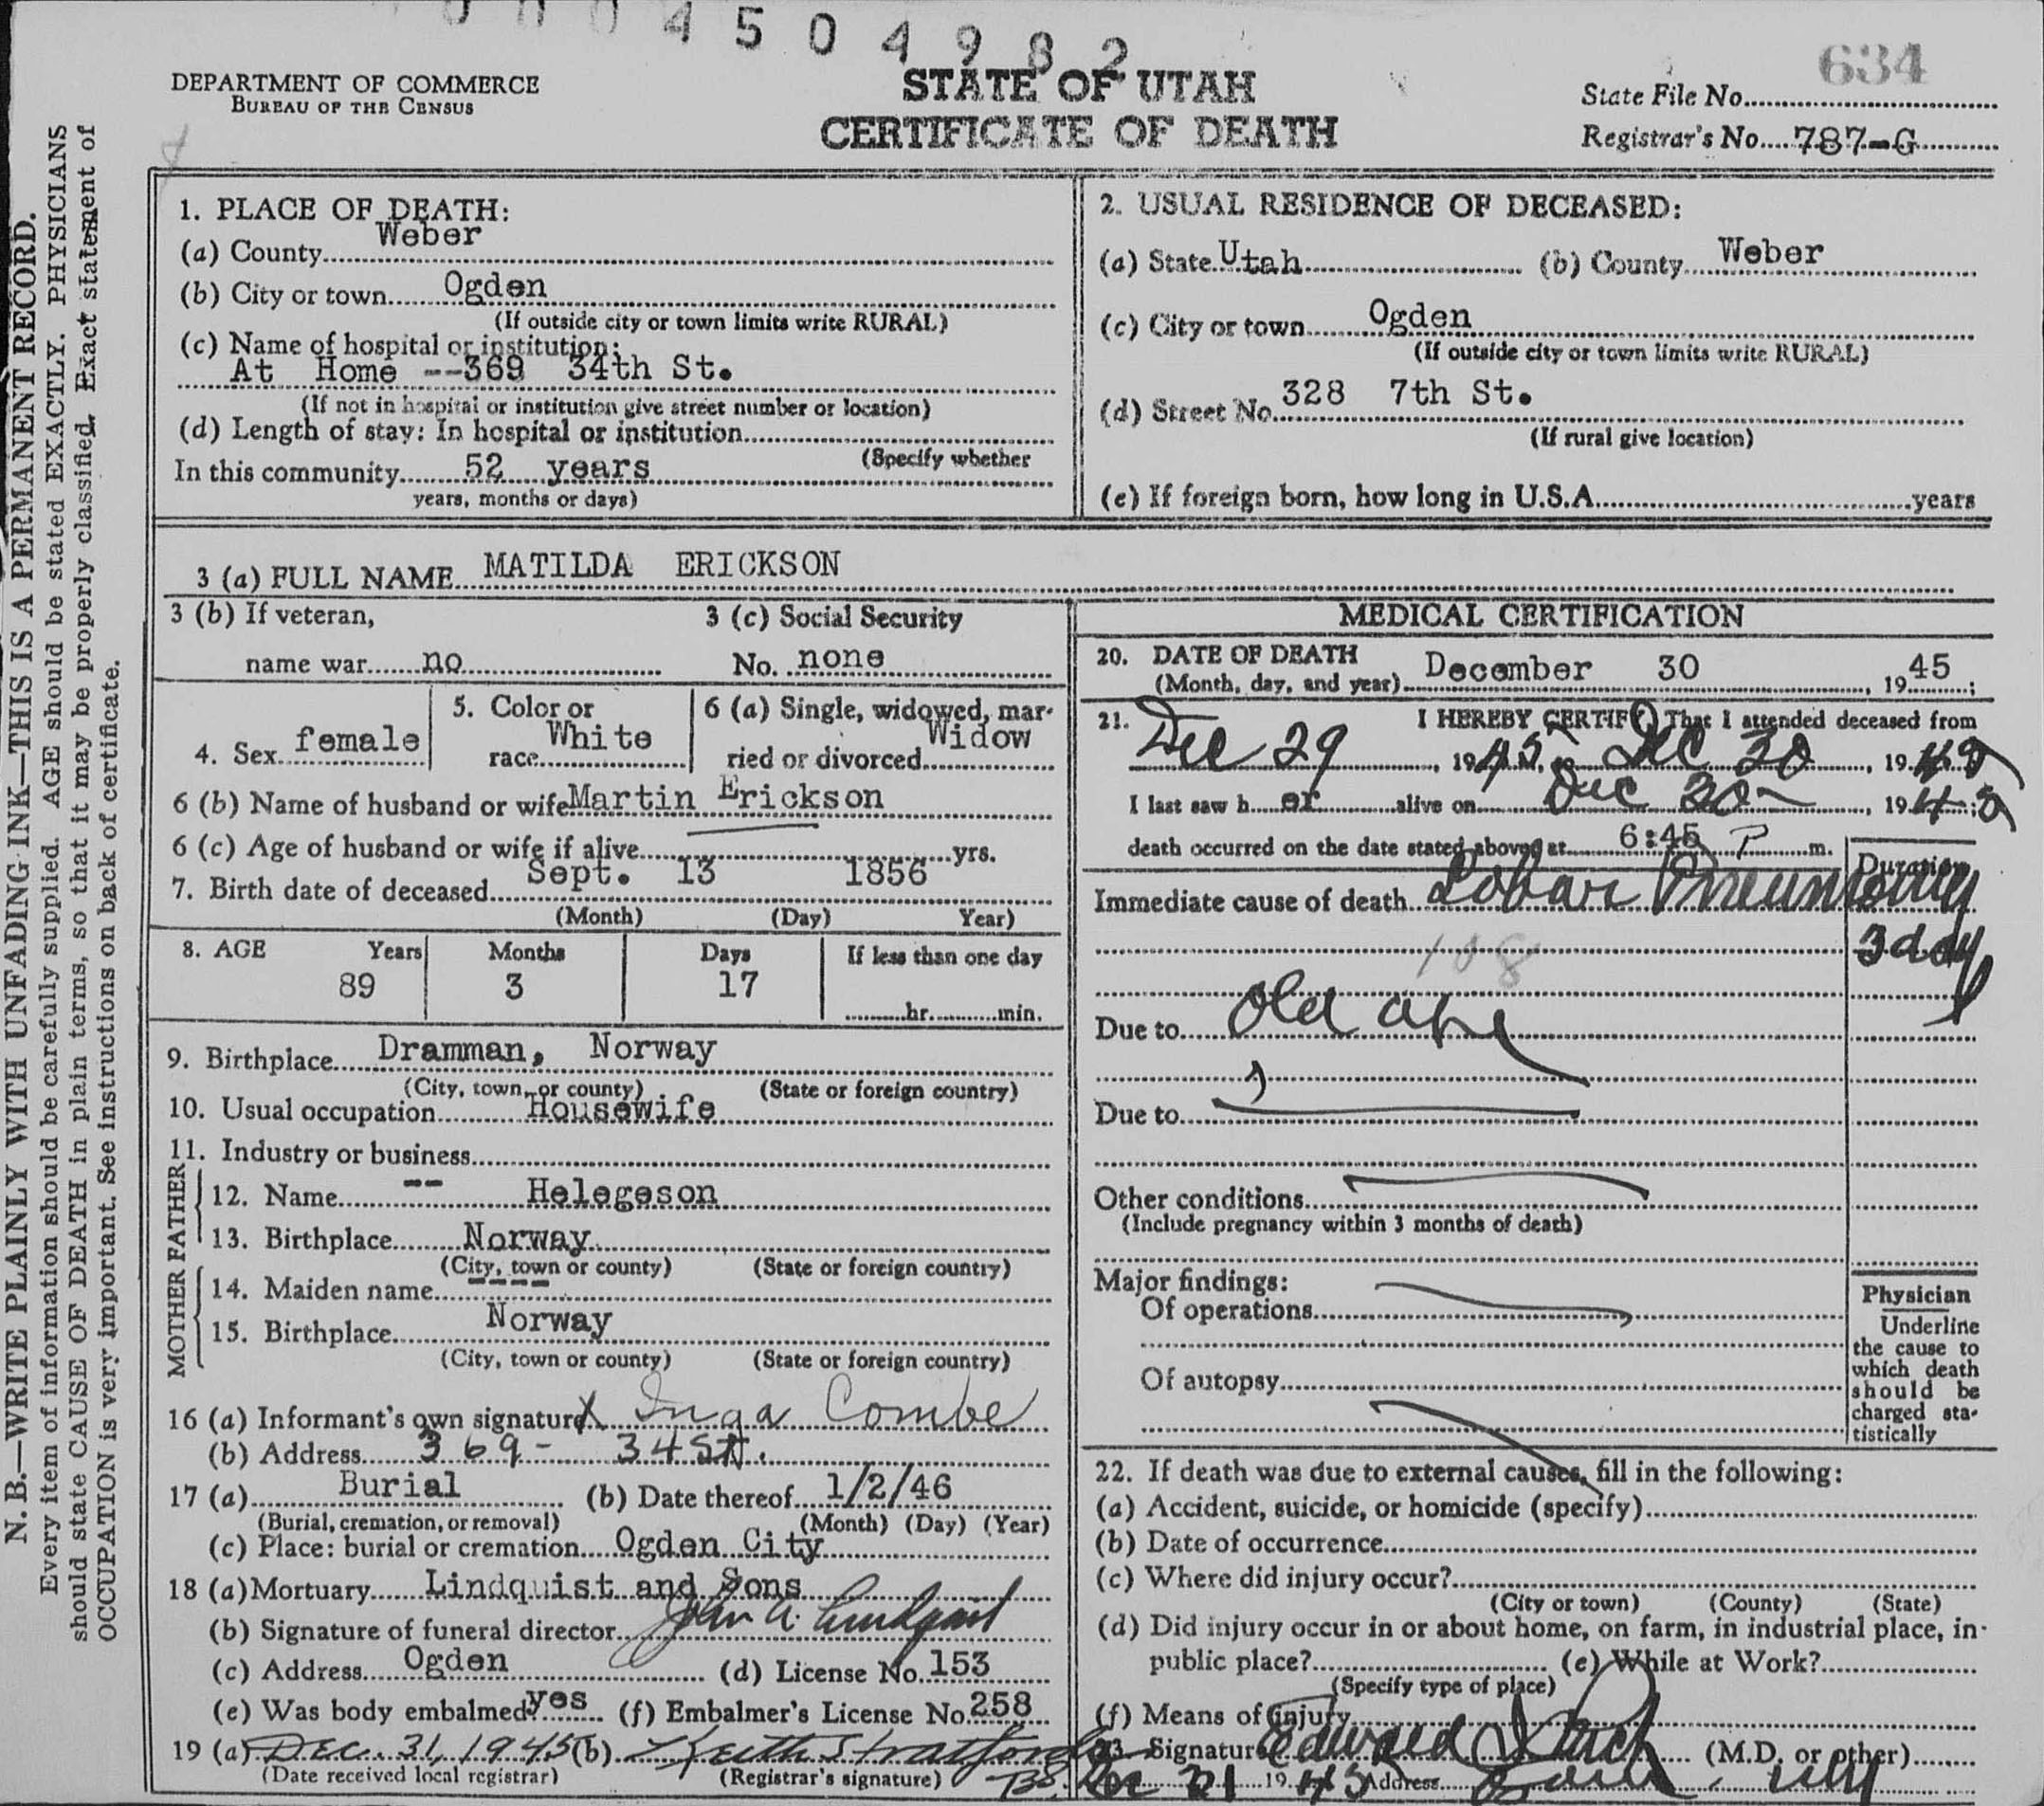 0004504982
DEPARTMENT OF COMMERCE
BUREAU OF THE CENSUS
STATE OF UTAH
CERTIFICATE OF DEATH
634
State File No.
Registrar's No. 787-G
N. B.—WRITE PLAINLY WITH UNFADING INK—THIS IS A PERMANENT RECORD.
Every item of information should be carefully supplied. AGE should be stated EXACTLY. PHYSICIANS
should state CAUSE OF DEATH in plain terms, so that it may be properly classified. Exact statement of
OCCUPATION is very important. See instructions on back of certificate.
1. PLACE OF DEATH:
(a) County Weber
(b) City or town Ogden
(If outside city or town limits write RURAL)
(c) Name of hospital or institution:
At Home --369 34th St.
(If not in hospital or institution give street number or location)
(d) Length of stay: In hospital or institution
(Specify whether
In this community 52 years
years, months or days)
2. USUAL RESIDENCE OF DECEASED:
(a) State Utah (b) County Weber
(c) City or town Ogden
(If outside city or town limits write RURAL)
(d) Street No. 328 7th St.
(If rural give location)
(e) If foreign born, how long in U.S.A. years
3 (a) FULL NAME MATILDA ERICKSON
3 (b) If veteran, 3 (c) Social Security
name war no No. none
4. Sex female
5. Color or
race White
6 (a) Single, widowed, mar-
ried or divorced Widow
6 (b) Name of husband or wife Martin Erickson
6 (c) Age of husband or wife if alive yrs.
7. Birth date of deceased Sept. 13 1856
(Month) (Day) Year)
8. AGE Years Months Days If less than one day
89 3 17 hr. min.
9. Birthplace Dramman, Norway
(City, town, or county) (State or foreign country)
10. Usual occupation Housewife
11. Industry or business
FATHER
12. Name -- Helegeson
13. Birthplace Norway
(City, town or county) (State or foreign country)
MOTHER
14. Maiden name ----
15. Birthplace Norway
(City, town or county) (State or foreign country)
16 (a) Informant's own signature X Inga Combe
(b) Address 369 - 34 St.
17 (a) Burial (b) Date thereof 1/2/46
(Burial, cremation, or removal) (Month) (Day) (Year)
(c) Place: burial or cremation Ogden City
18 (a) Mortuary Lindquist and Sons
(b) Signature of funeral director John A. Lindquist
(c) Address Ogden (d) License No. 153
(e) Was body embalmed? yes (f) Embalmer's License No. 258
19 (a) Dec. 31, 1945 (b) Keith Stratford
(Date received local registrar) (Registrar's signature) BS.
MEDICAL CERTIFICATION
20. DATE OF DEATH
(Month, day, and year) December 30, 1945;
21. I HEREBY CERTIFY That I attended deceased from
Dec 29, 1945, to Dec 30, 1945
I last saw her alive on Dec 30, 1945;
death occurred on the date stated above, at 6:45 P m.
Duration
Immediate cause of death Lobar Pneumonia
3 day
108
Due to Old age
Due to
Other conditions
(Include pregnancy within 3 months of death)
Major findings:
Of operations
Of autopsy
Physician
Underline
the cause to
which death
should be
charged sta-
tistically
22. If death was due to external causes, fill in the following:
(a) Accident, suicide, or homicide (specify)
(b) Date of occurrence
(c) Where did injury occur?
(City or town) (County) (State)
(d) Did injury occur in or about home, on farm, in industrial place, in
public place? (e) While at Work?
(Specify type of place)
(f) Means of injury
23. Signature Edward (M.D. or other)
Dec 31 1945 Address